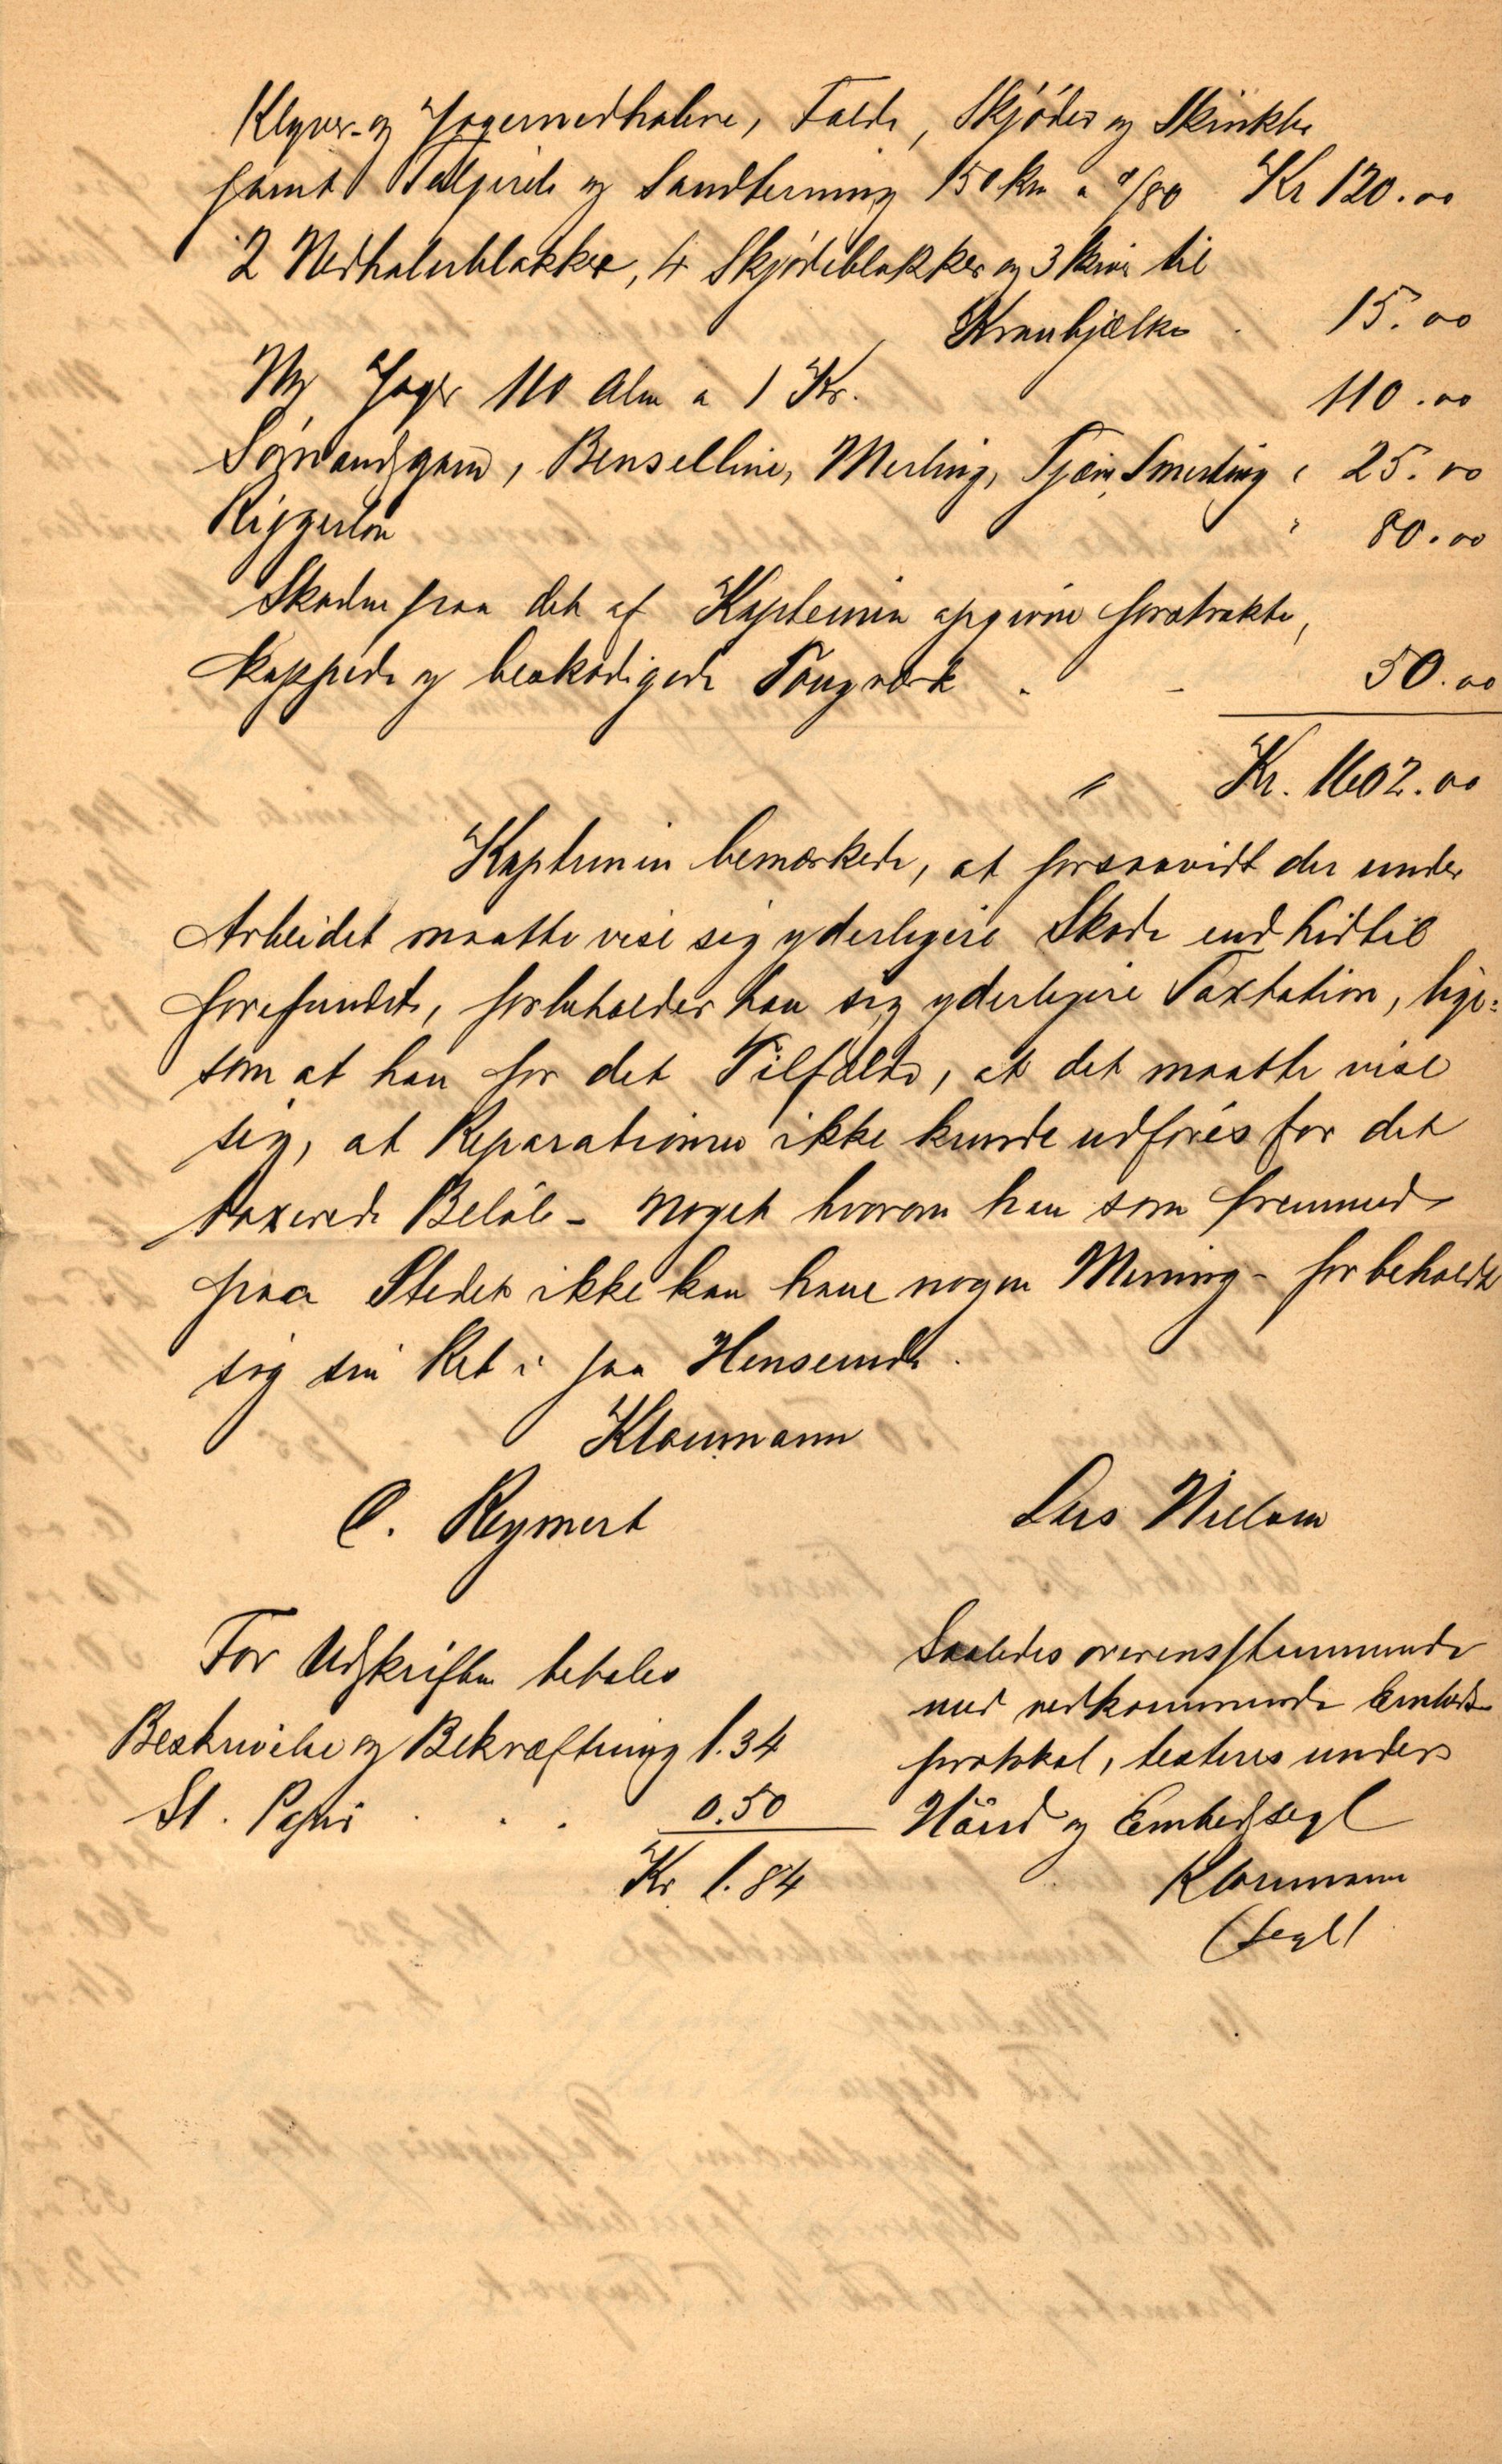 Klyver- og Jagernedhalere, Falde, Skjøder og Skinkler
samt Talgreeb og Sandterning 150 km a 0/80 Kr 120.00
2 Nedhalerblokker, 4 Skjødeblokker og 3 skiver til
Kranbjælke . 15.00
Ny Jager 110 Alm a 1 Kr. 110.00
Sømandsgarn, Benselline, Merling, Tjære, Smerting " 25.00
Riggerløn " 80.00
Skaden paa det af Kapteinen opgivne forstrakte,
kappede og beskadigede Tougværk . - 50.00
" Kr. 1602.00
Kapteinen bemærkede, at forsaavidt der under
Arbeidet maatte vise sig yderligere Skade end hidtil
forefundet, forbeholder han sig yderligere Taxtation, lige=
som at han for det Tilfælde, at det maatte vise
sig, at Reparationen ikke kunde udføres for det
taxerede Beløb - noget hvorom han som fremmed
paa Stedet ikke kan have nogen Mening - forbeholdt
sig sin Ret i saa Henseende.
Klaumann
C. Reymert Lars Nielsen
For Udskriften betales
Beskrivelse og Bekræftning 1.34
St. Papir . . . 0.50
Kr 1.84
Saaledes overensstemmende
med vedkommende Embeds-
protokol, testeres under
Haand og Embedssegl
Klaumann
(Segl)